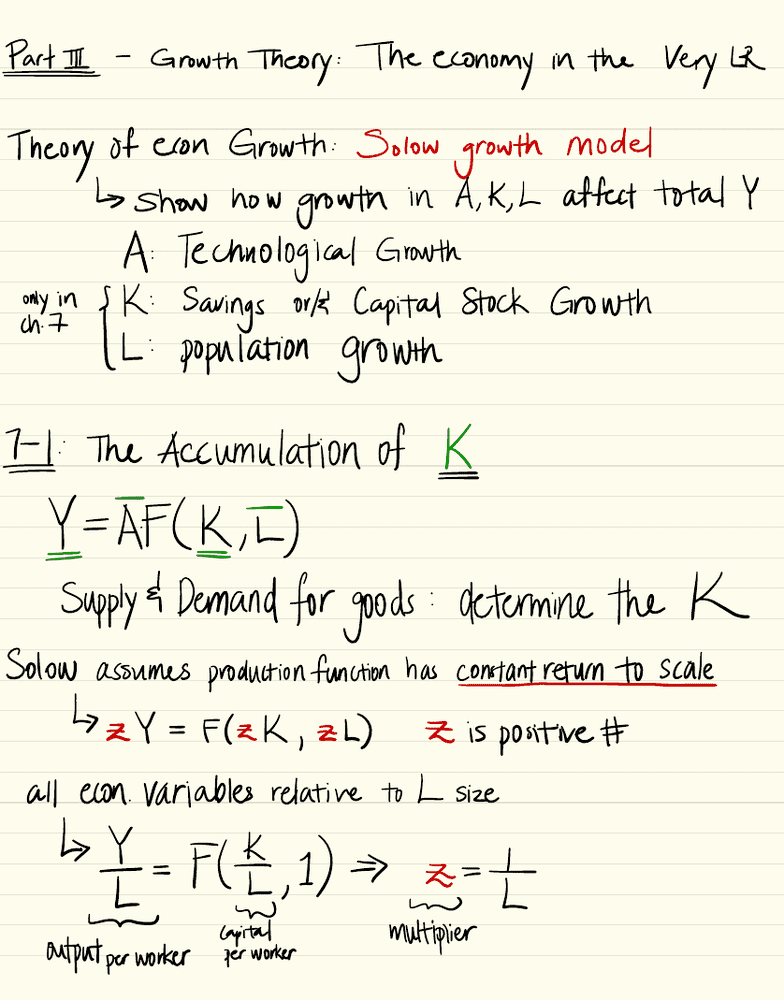 Part III - Growth Theory: The economy in the Very LR
Theory of econ Growth: Solow growth model
↳ show how growth in A, K, L affect total Y
A: Technological Growth
only in ch. 7 { K: Savings or/& Capital Stock Growth
L: population growth
7-1: The Accumulation of K
Y = A̅F(K, L̅)
Supply & Demand for goods: determine the K
Solow assumes production function has constant return to scale
↳ zY = F(zK, zL) z is positive #
all econ. variables relative to L size
↳ Y/L = F(K/L, 1) ⇒ z = 1/L
output per worker capital per worker multiplier